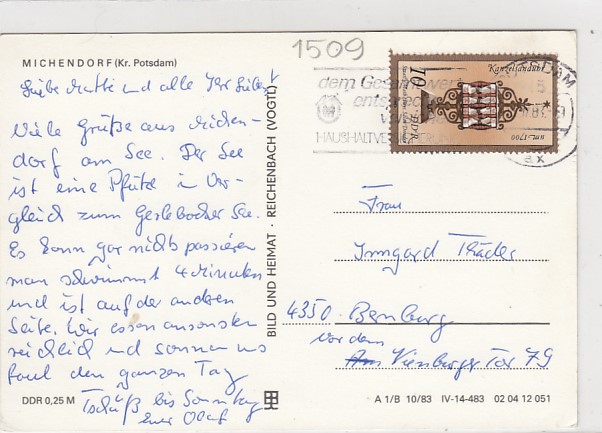 1509
MICHENDORF (Kr. Potsdam)
Liebe Mutti und alle Ihr Lieben!
Viele Grüße aus Michen-
dorf am See. Der See
ist eine Pfütze in Ver-
gleich zum Gerlebocher See.
Es kann gar nichts passieren
man schwimmt 4 Minuten
und ist auf der anderen
Seite. Wir essen ansonsten
reichlich und sonnen uns
faul den ganzen Tag
Tschüß bis Sonntag
Euer Olaf
DDR 0,25 M
BILD UND HEIMAT · REICHENBACH (VOGTL)
Kanzelsanduhr
um 1700
10
DDR
dem Gesamtwert
HAUSHALTVERSICHERUNG
Frau
Irmgard Thäder
4350 Bernburg
vor dem Nienburger Tor 79
A 1/B 10/83 IV-14-483 02 04 12 051